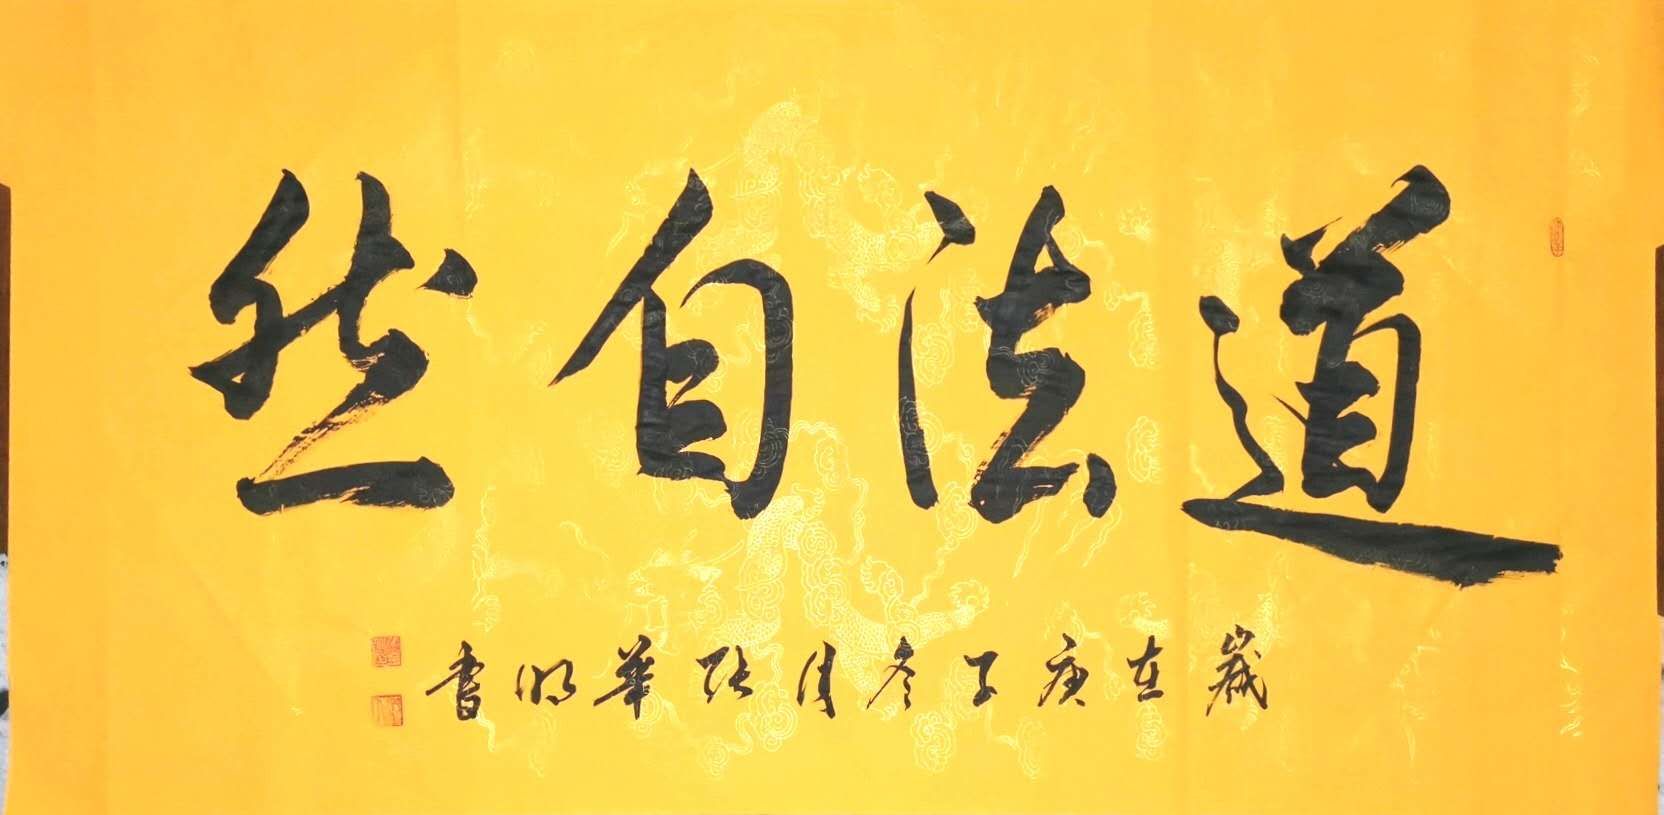 道法自然
歲在庚子冬月張華明書